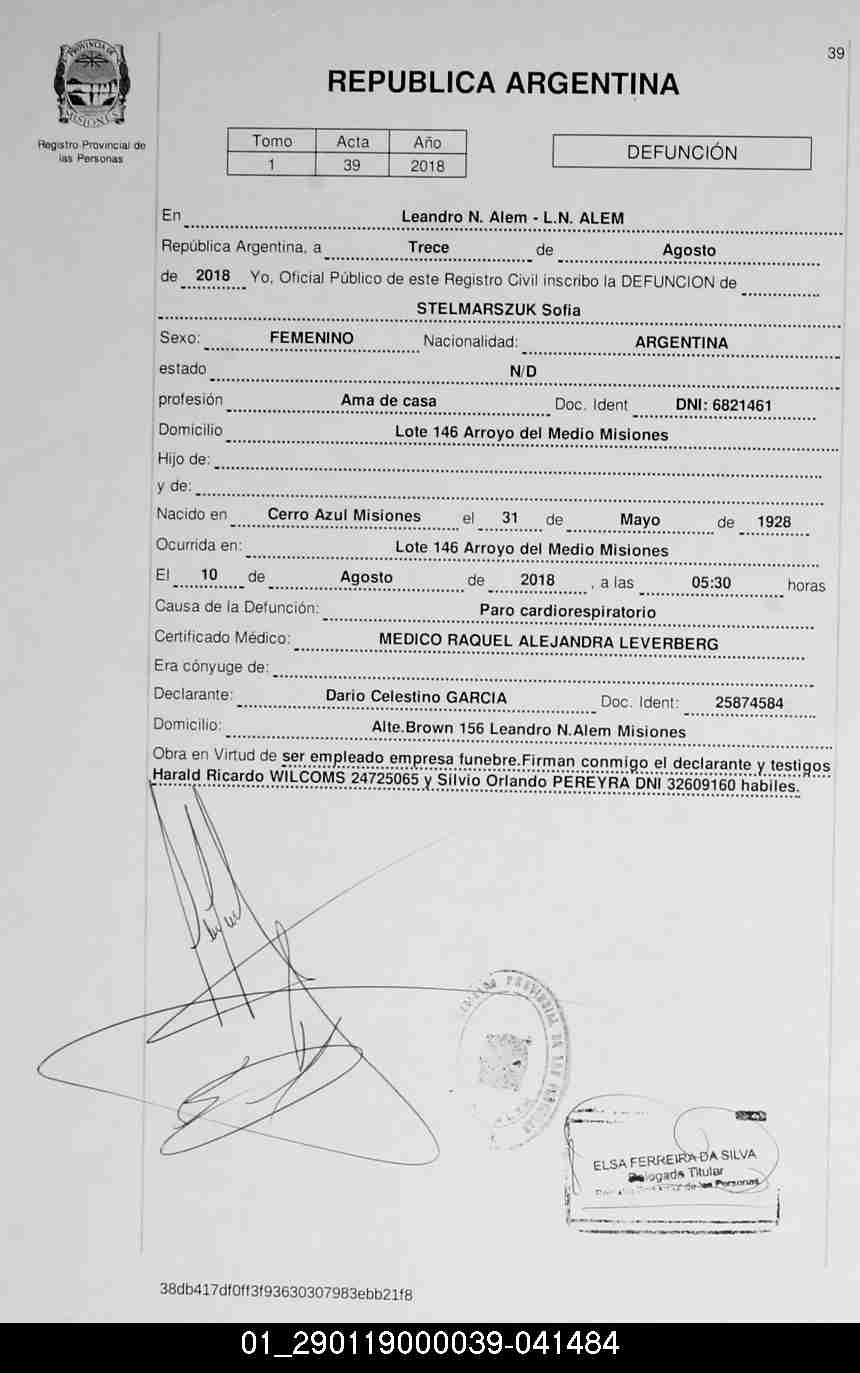 39
PROVINCIA DE
MISIONES
Registro Provincial de
las Personas
REPUBLICA ARGENTINA
Tomo Acta Año
1 39 2018
DEFUNCIÓN
En Leandro N. Alem - L.N. ALEM
República Argentina, a Trece de Agosto
de 2018 Yo, Oficial Público de este Registro Civil inscribo la DEFUNCION de
STELMARSZUK Sofia
Sexo: FEMENINO Nacionalidad: ARGENTINA
estado N/D
profesión Ama de casa Doc. Ident DNI: 6821461
Domicilio Lote 146 Arroyo del Medio Misiones
Hijo de:
y de:
Nacido en Cerro Azul Misiones el 31 de Mayo de 1928
Ocurrida en: Lote 146 Arroyo del Medio Misiones
El 10 de Agosto de 2018 , a las 05:30 horas
Causa de la Defunción: Paro cardiorespiratorio
Certificado Médico: MEDICO RAQUEL ALEJANDRA LEVERBERG
Era cónyuge de:
Declarante: Dario Celestino GARCIA Doc. Ident: 25874584
Domicilio: Alte.Brown 156 Leandro N.Alem Misiones
Obra en Virtud de ser empleado empresa funebre.Firman conmigo el declarante y testigos
Harald Ricardo WILCOMS 24725065 y Silvio Orlando PEREYRA DNI 32609160 habiles.
PROVINCIAL DE LAS
ELSA FERREIRA DA SILVA
Delegada Titular
de las Personas
38db417df0ff3f93630307983ebb21f8
01_290119000039-041484